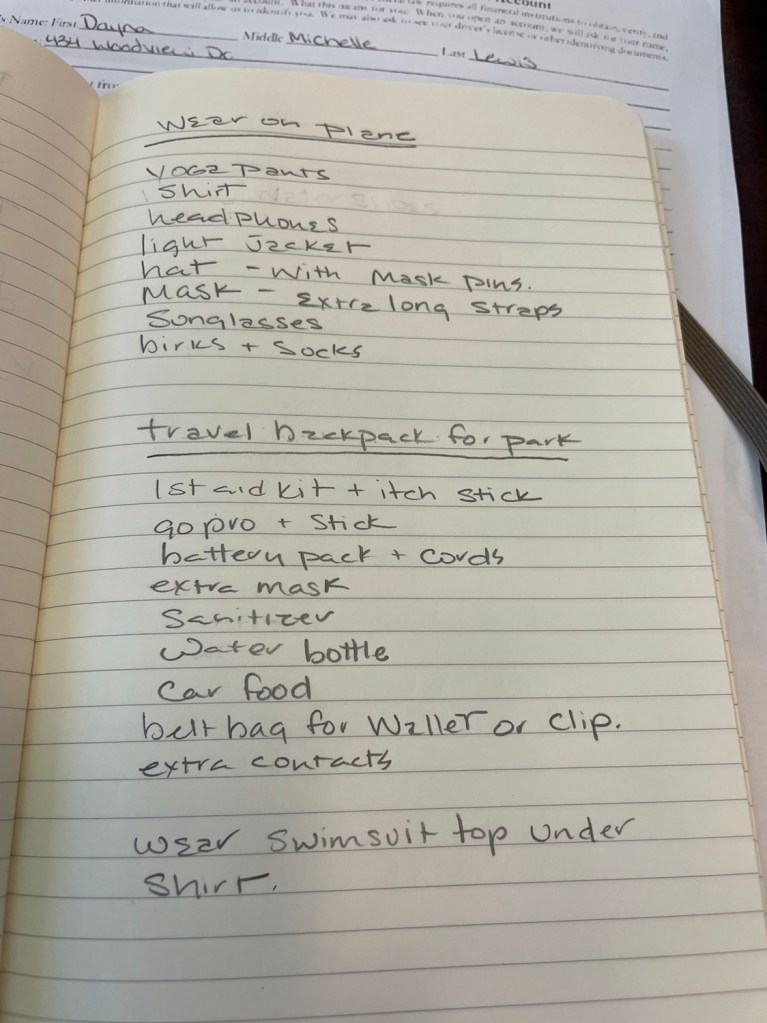 Account
requires all financial institutions to obtain, verify, and
information that will allow us to identify you.
What this means for you: When you open an account, we will ask for your name,
We may also ask to see your driver's license or other identifying documents.
's Name: First Dayna Middle Michelle Last Lewis
434 Woodview Dr.
wear on plane
yoga pants
shirt
headphones
light jacket
hat - with mask pins.
mask - extra long straps
sunglasses
birks + socks
travel backpack for park
1st aid kit + itch stick
go pro + stick
battery pack + cords
extra mask
sanitizer
water bottle
car food
belt bag for wallet or clip.
extra contacts
wear swimsuit top under
shirt.